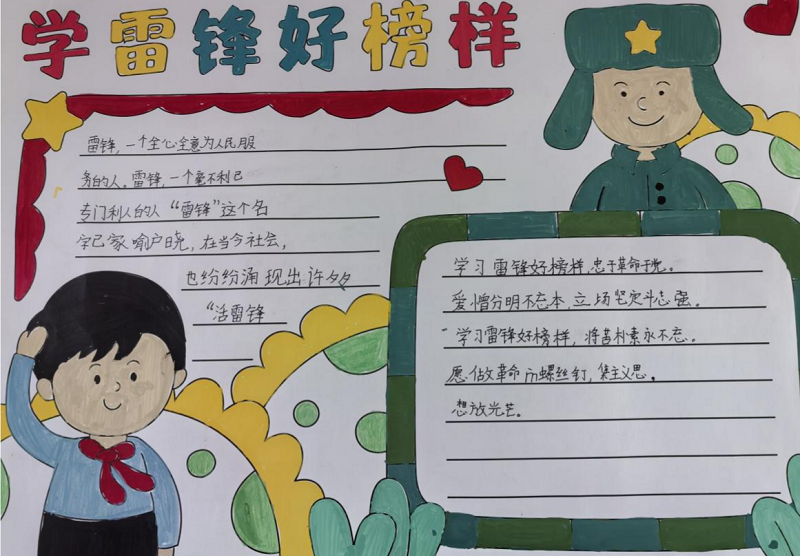 学雷锋好榜样
雷锋,一个全心全意为人民服
务的人。雷锋,一个毫不利己
专门利人的人“雷锋”这个名
字已家喻户晓,在当今社会,
也纷纷涌现出许多
“活雷锋
学习雷锋好榜样,忠于革命于党。
爱憎分明不忘本,立场坚定斗志强。
学习雷锋好榜样,将苦朴素永不忘。
愿做革命的螺丝钉,集主义思。
想放光芒。